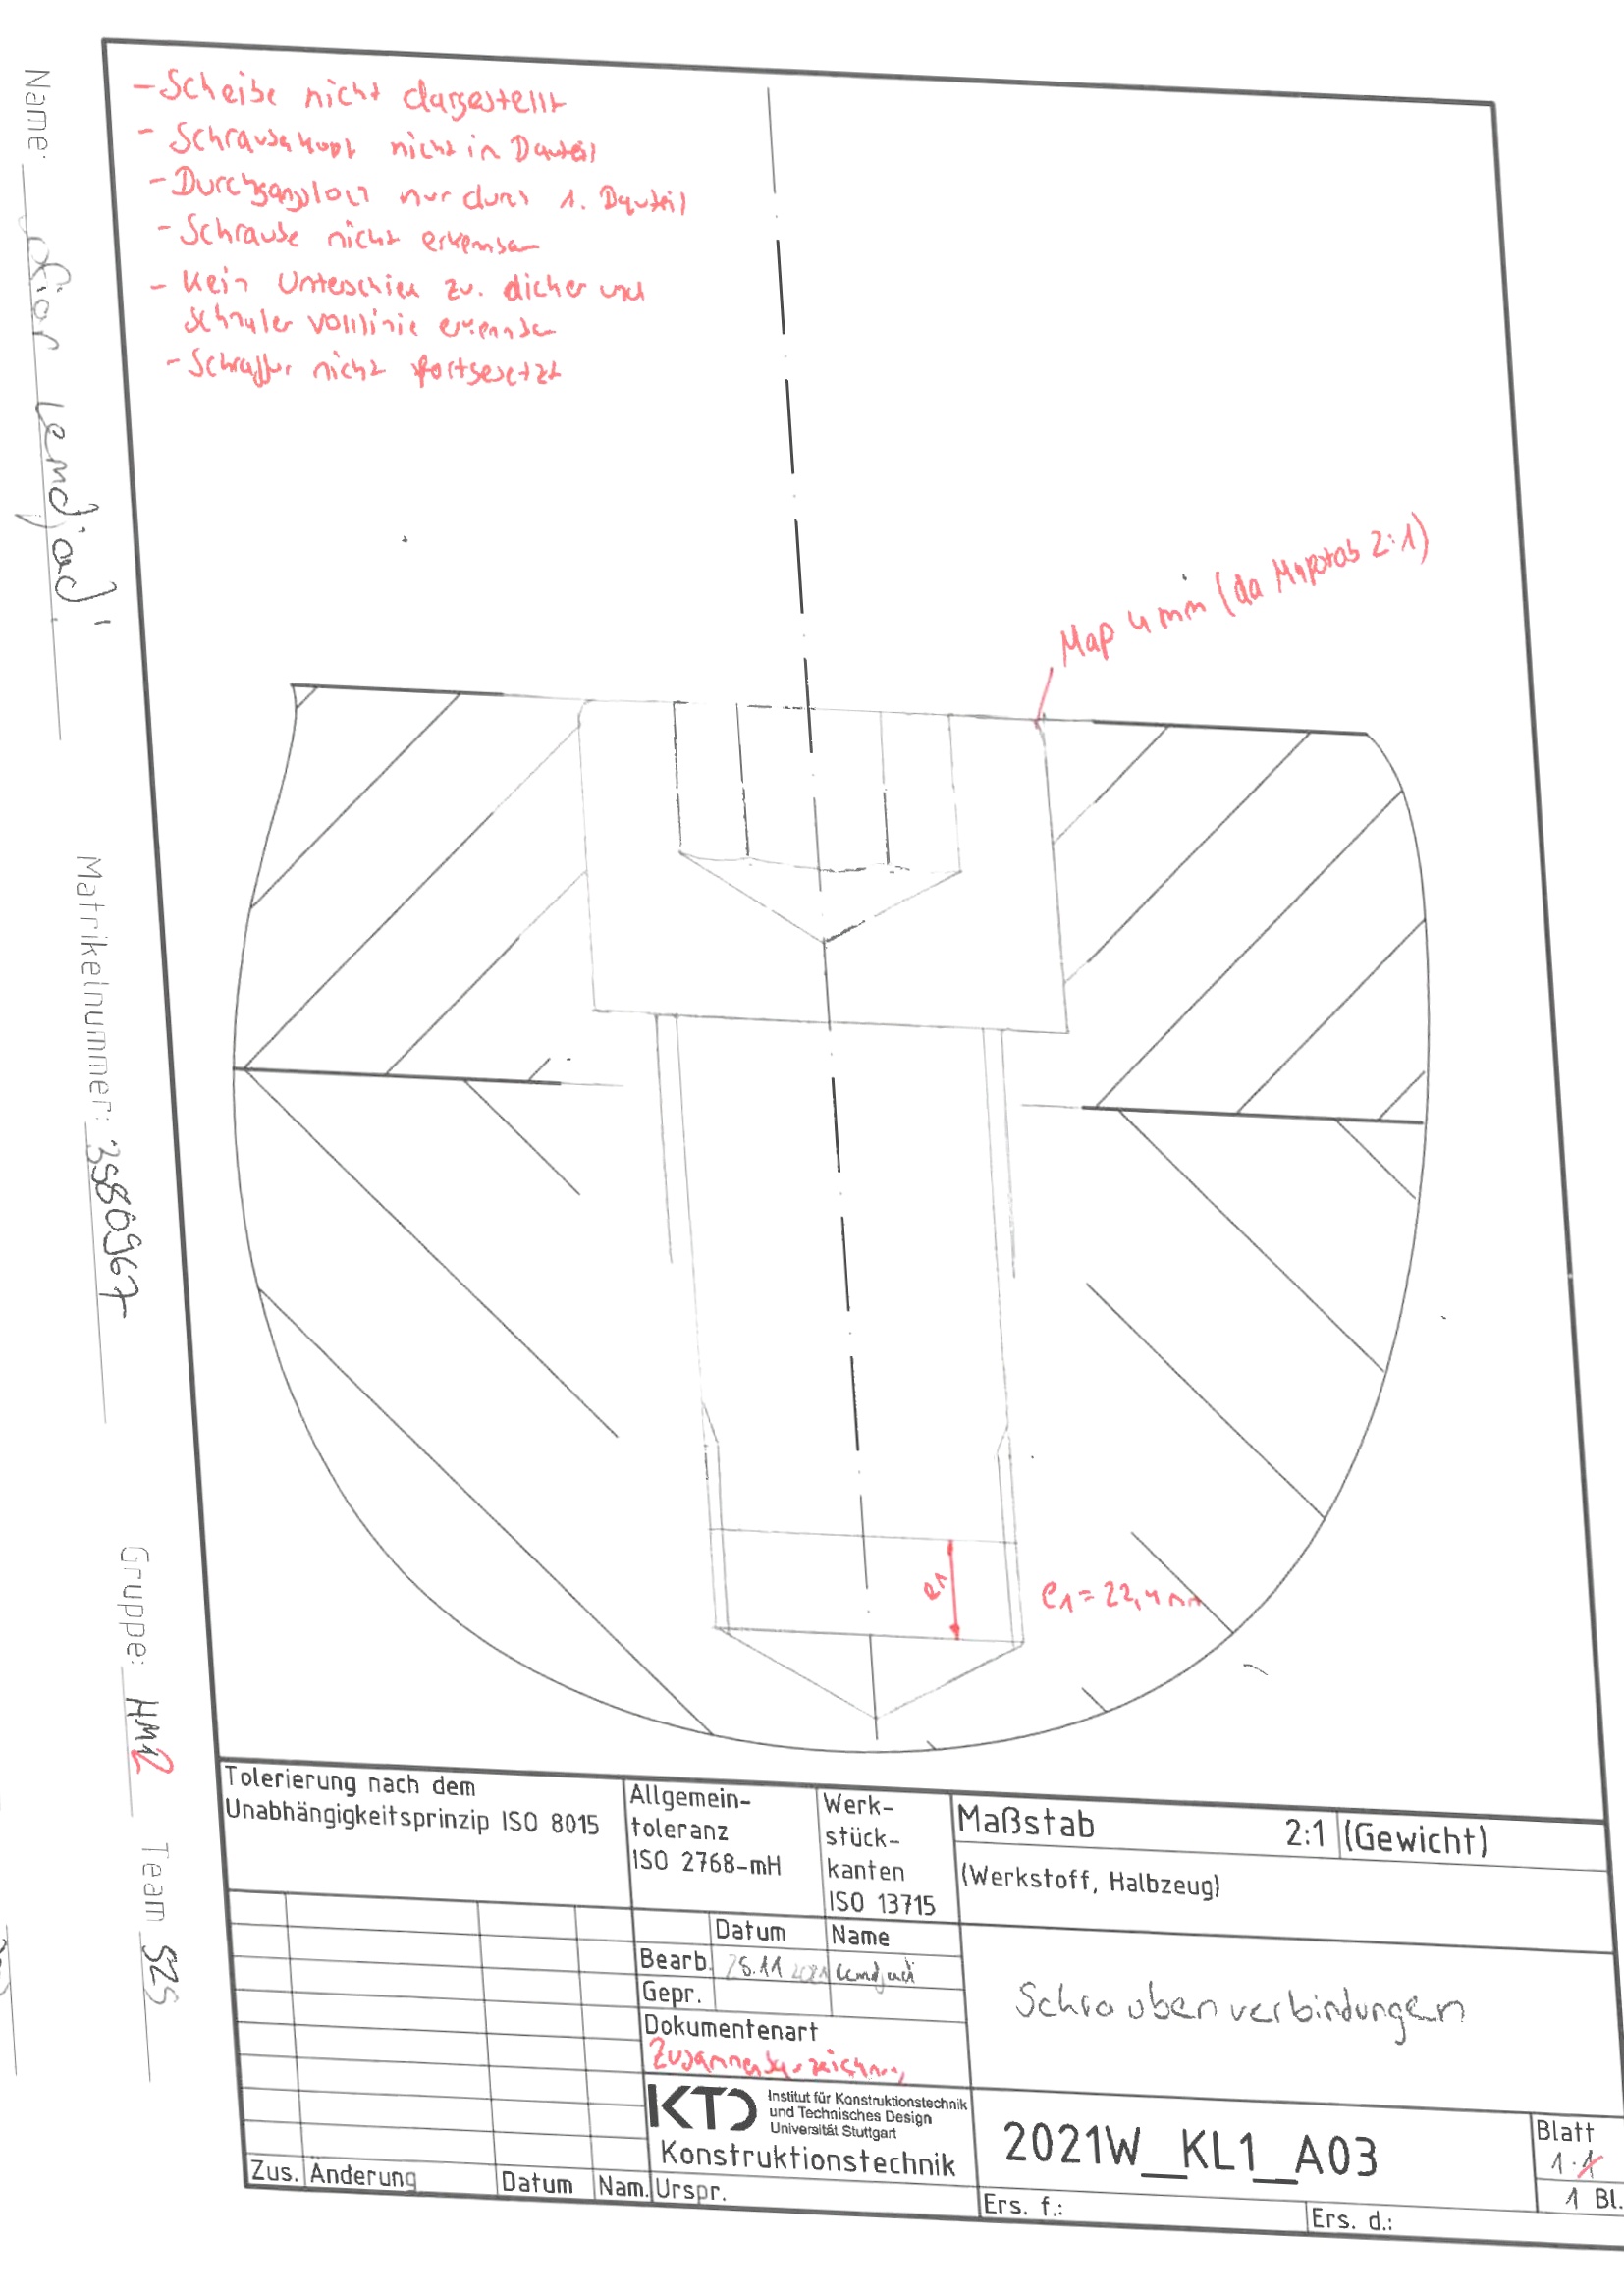 - Scheibe nicht dargestellt
- Schraubenkopf nicht in Bauteil
- Durchgangsloch nur durch 1. Bauteil
- Schraube nicht erkennbar
- Kein Unterschied zw. dicker und
schmaler Volllinie erkennbar
- Schraffur nicht fortgesetzt
Maß 4 mm (da Maßstab 2:1)
e1
e1 = 22,4 mm
Name: Lemdjad
Matrikelnummer: 3586967
Gruppe: HM2
Team S25
Tolerierung nach dem
Unabhängigkeitsprinzip ISO 8015
Allgemein-
toleranz
ISO 2768-mH
Werk-
stück-
kanten
ISO 13715
Maßstab 2:1 (Gewicht)
(Werkstoff, Halbzeug)
Datum Name
Bearb. 25.11 2021 Lemdjad
Gepr.
Dokumentenart
Zusammenbauzeichnung
Schraubenverbindungen
KTD Institut für Konstruktionstechnik
und Technisches Design
Universität Stuttgart
Konstruktionstechnik
2021W_KL1_A03
Blatt
1.1
1 Bl.
Zus. Änderung Datum Nam. Urspr.
Ers. f.: Ers. d.: